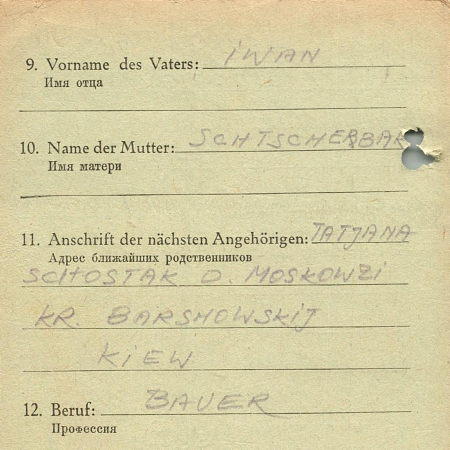 9. Vorname des Vaters: IWAN
Имя отца
10. Name der Mutter: SCHTSCHERBAK
Имя матери
11. Anschrift der nächsten Angehörigen: TATJANA
Адрес ближайших родственников
SCHOSTAK D. MOSKOWZI
KR. BARSHOWSKIJ
KIEW
12. Beruf: BAUER
Профессия